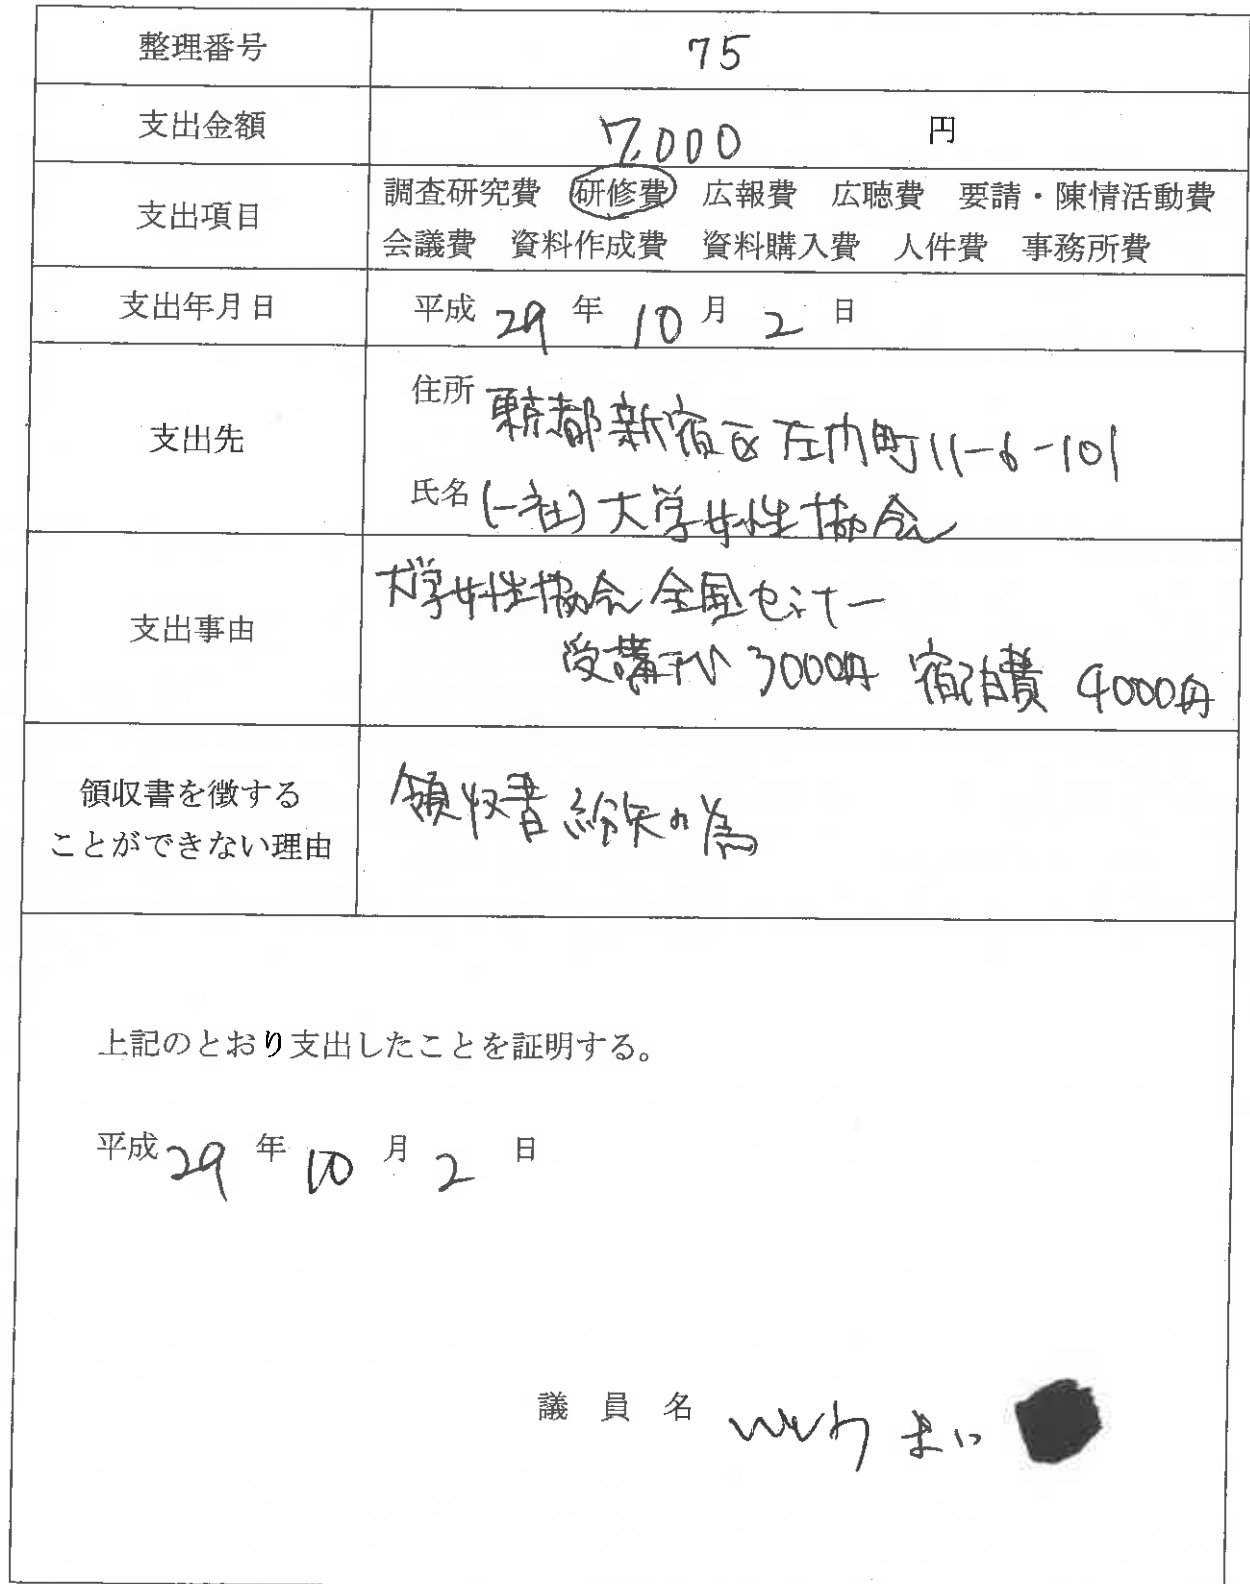 整理番号 75
支出金額 7,000 円
支出項目 調査研究費 研修費 広報費 広聴費 要請・陳情活動費
会議費 資料作成費 資料購入費 人件費 事務所費
支出年月日 平成 29 年 10 月 2 日
支出先 住所 東京都新宿区左門町11-6-101
氏名 (一社)大学女性協会
支出事由 大学女性協会全国セミナー
受講 3000円 宿泊費 4000円
領収書を徴する
ことができない理由 領収書紛失の為
上記のとおり支出したことを証明する。
平成 29 年 10 月 2 日
議員名